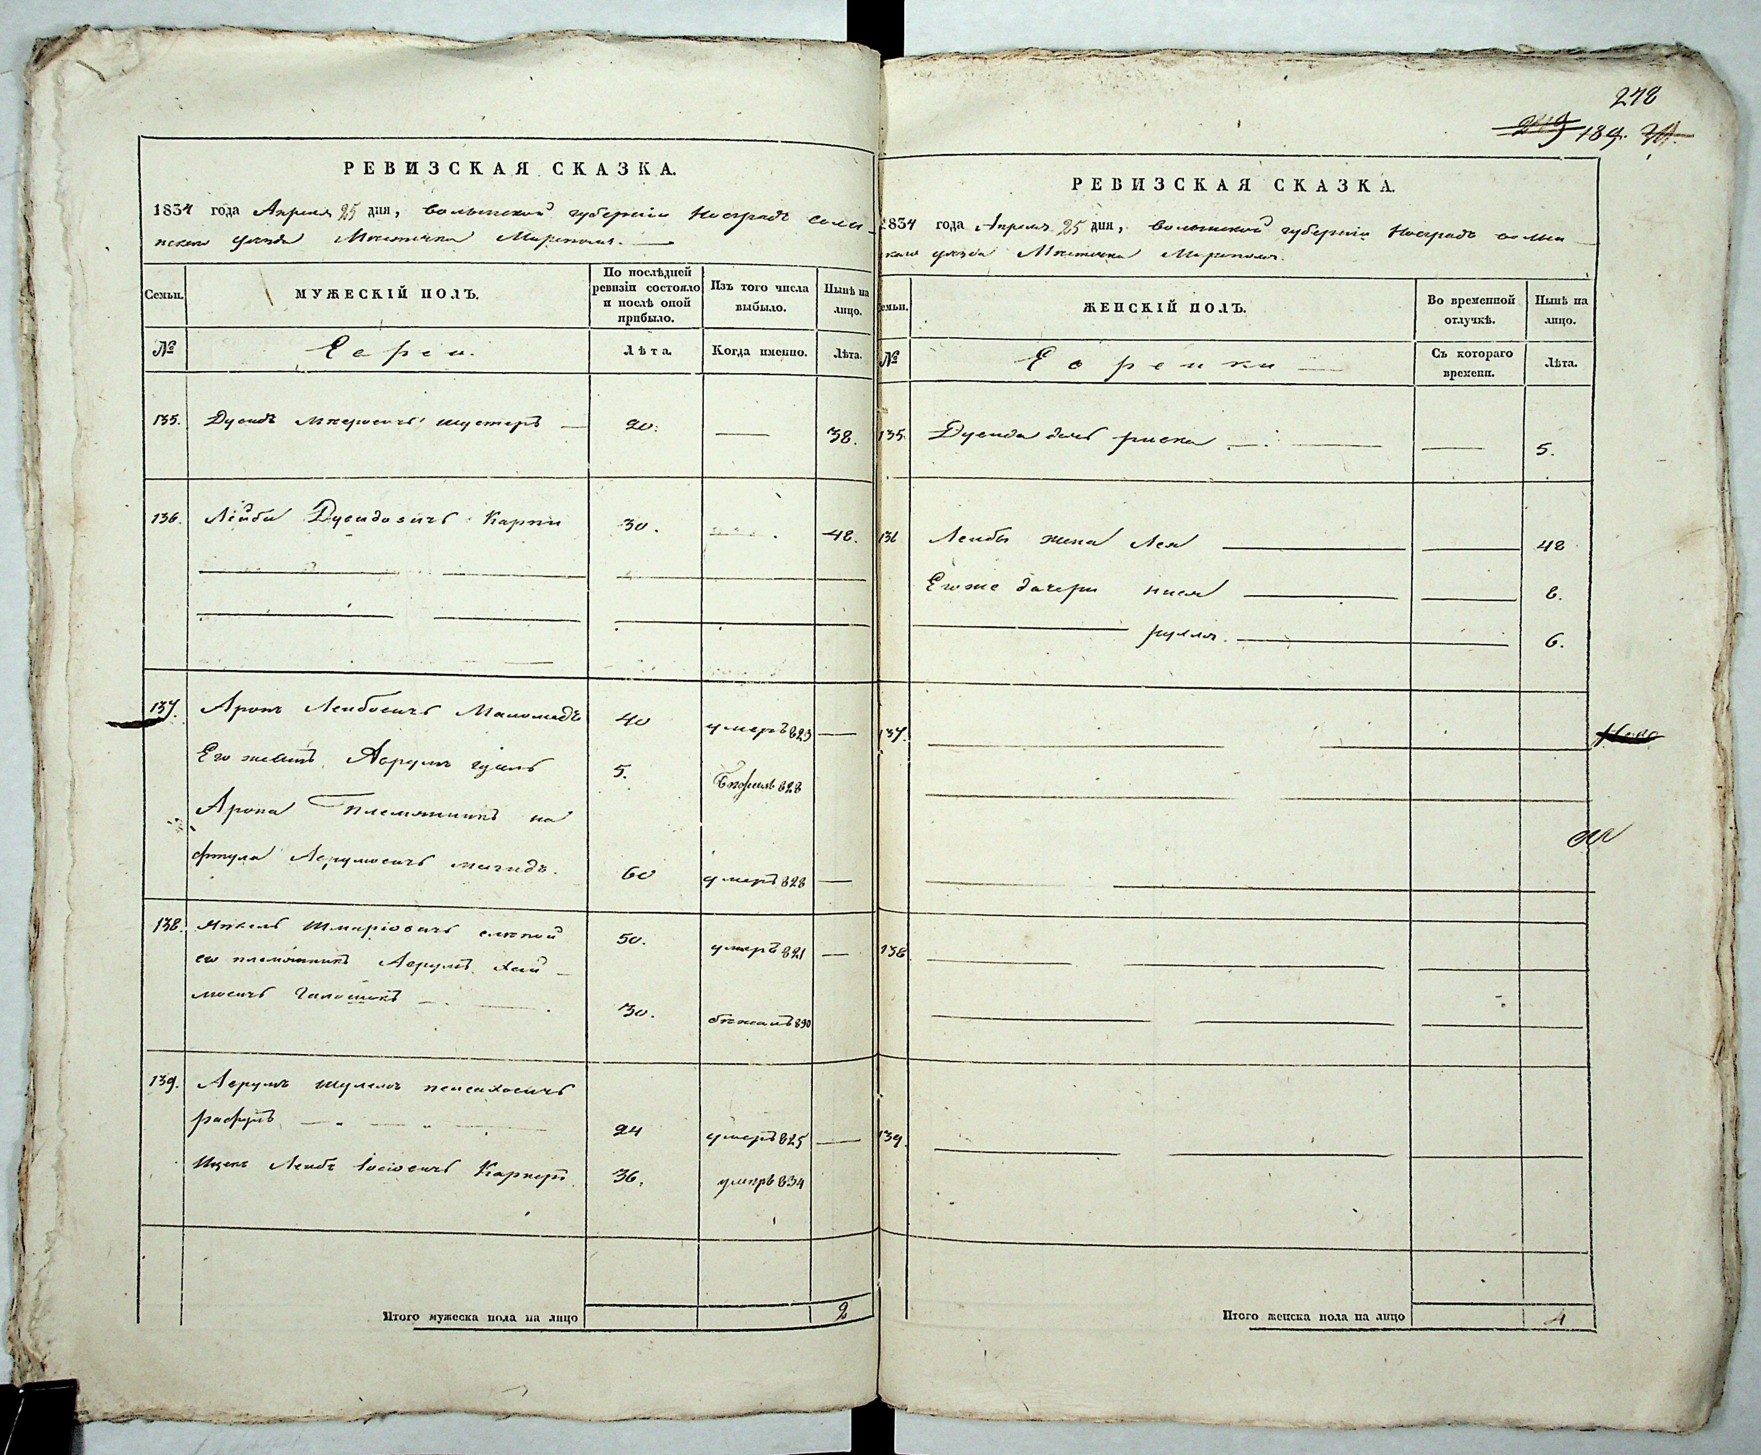 278
189.
РЕВИЗСКАЯ СКАЗКА.
1834 года Апреля 25 дня, волынской губернiи Новградъ волын-
скаго уѣзда Мѣстечка Мирополя.
Семьи.
МУЖЕСКІЙ ПОЛЪ.
По послѣдней ревизіи состояло и послѣ оной прибыло.
Изъ того числа выбыло.
Нынѣ на лицо.
№
Евреи.
Лѣта.
Когда именно.
Лѣта.
135. Дувидъ шустеръ 20. 38.
136. Лейба Дувидовичъ Карпи 30. 48.
137. Аронъ Лейбовичъ 40 умеръ 823
Его Аврумъ 5. 828
Арона племянникъ на
Аврумовичъ 60 умеръ 828
138. Янкель слепой 50. умеръ 821
его племянникъ Аврумъ Хай-
мовичъ 30. бѣжалъ 830
139. Аврумъ Шулемъ пейсаховичъ
24 умеръ 825
Ицекъ Лейбъ Іосіовичъ 36. умеръ 834
Итого мужеска пола на лицо 2
РЕВИЗСКАЯ СКАЗКА.
1834 года Апреля 25 дня, волынской губернiи Новградъ волын
скаго уѣзда Мѣстечка Мирополя.
Семьи.
ЖЕНСКІЙ ПОЛЪ.
Во временной отлучкѣ.
Нынѣ на лицо.
№
Еврейки
Съ котораго времени.
Лѣта.
135. Дувида дочь риска 5.
136 Лейбы жена Лея 48
Его же дочери 8.
6.
137.
138
139.
Итого женска пола на лицо 4